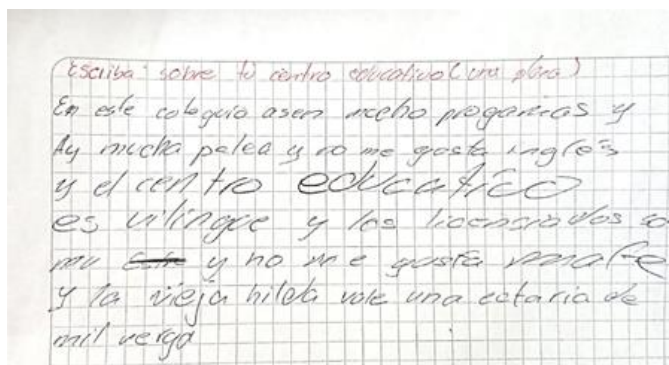 Escriba sobre tu centro educativo (una plana)
En este coleguio asen mucho progamas y
Ay mucha pelea y no me gusta ingles
y el centro educatico
es vilingue y los licenciados so
muy y no me gusta mate
y la vieja hilda vale una hectaria de
mil verga